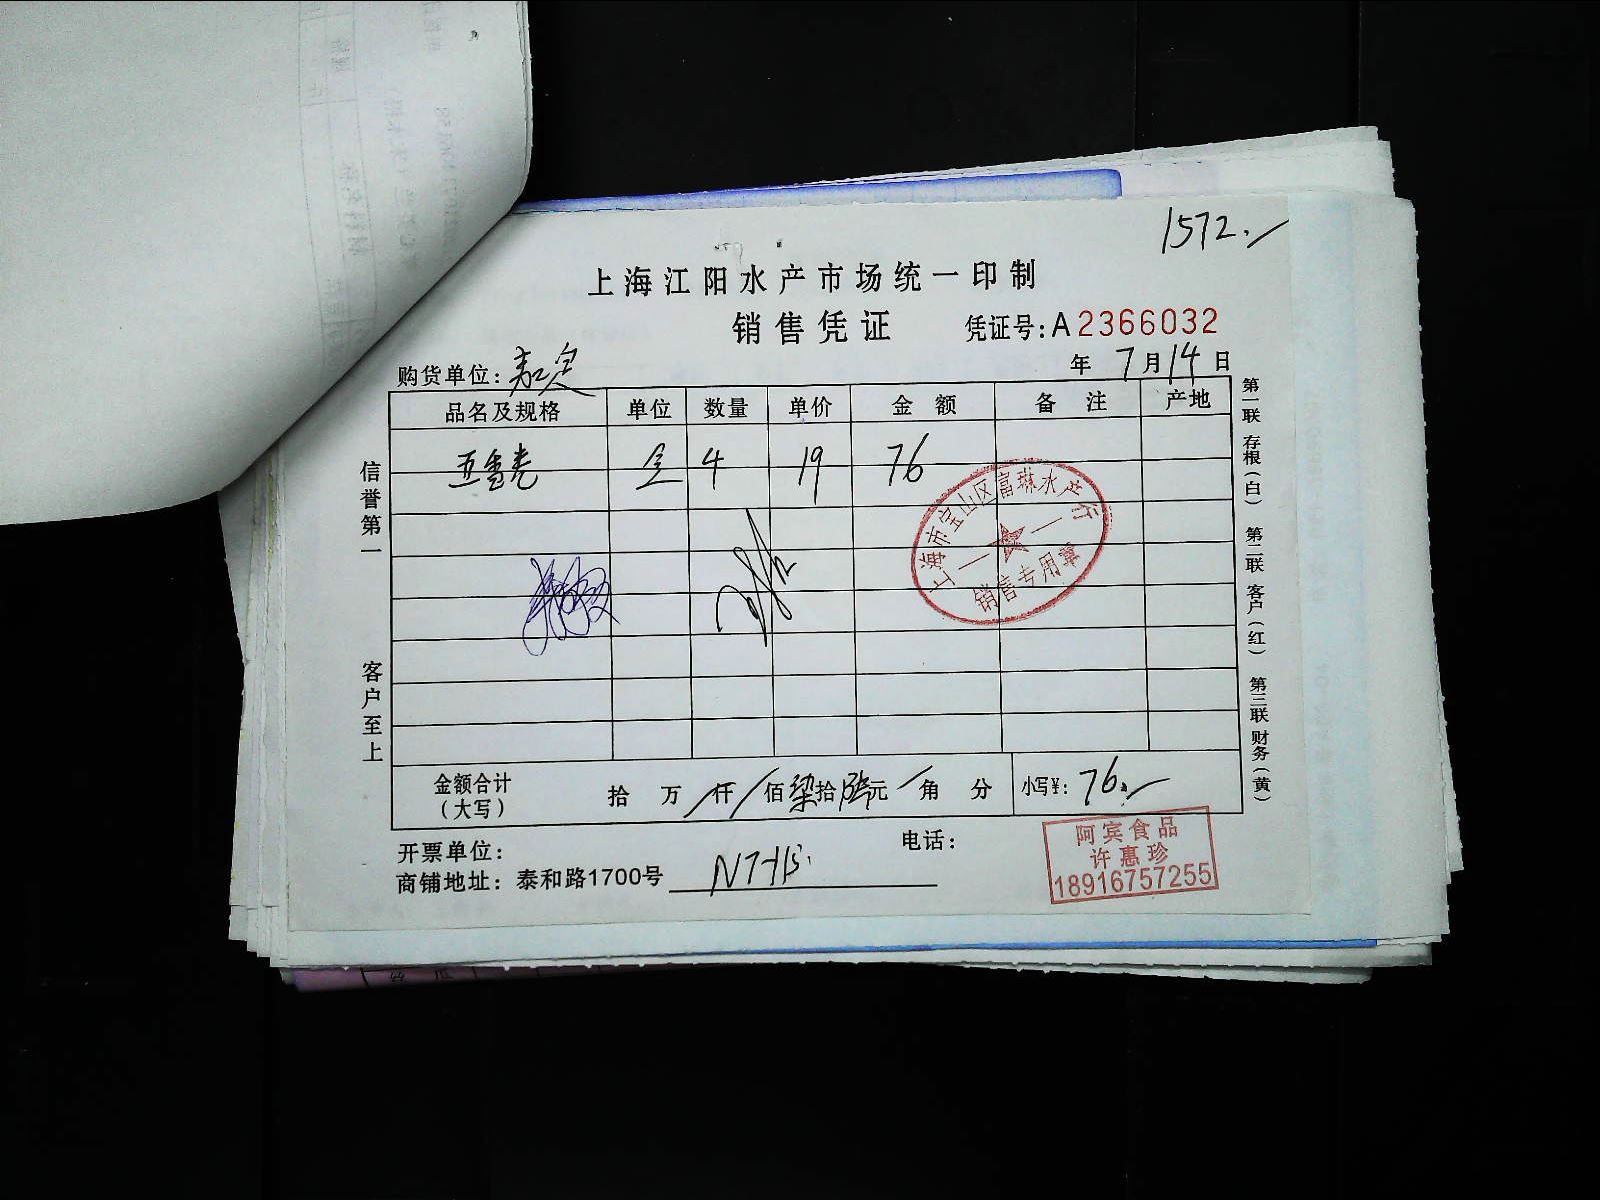 1572.
上海江阳水产市场统一印制
销售凭证 凭证号:A2366032
购货单位:嘉定 年7月14日
品名及规格 单位 数量 单价 金额 备注 产地
4 19 76
上海市宝山区富琳水产行
销售专用章
信誉第一
客户至上
第一联 存根(白) 第二联 客户(红) 第三联 财务(黄)
金额合计(大写) 拾 万 仟 佰 柒拾 陆元 角 分 小写¥:76.
开票单位: 电话:
商铺地址:泰和路1700号
阿宾食品
许惠珍
18916757255